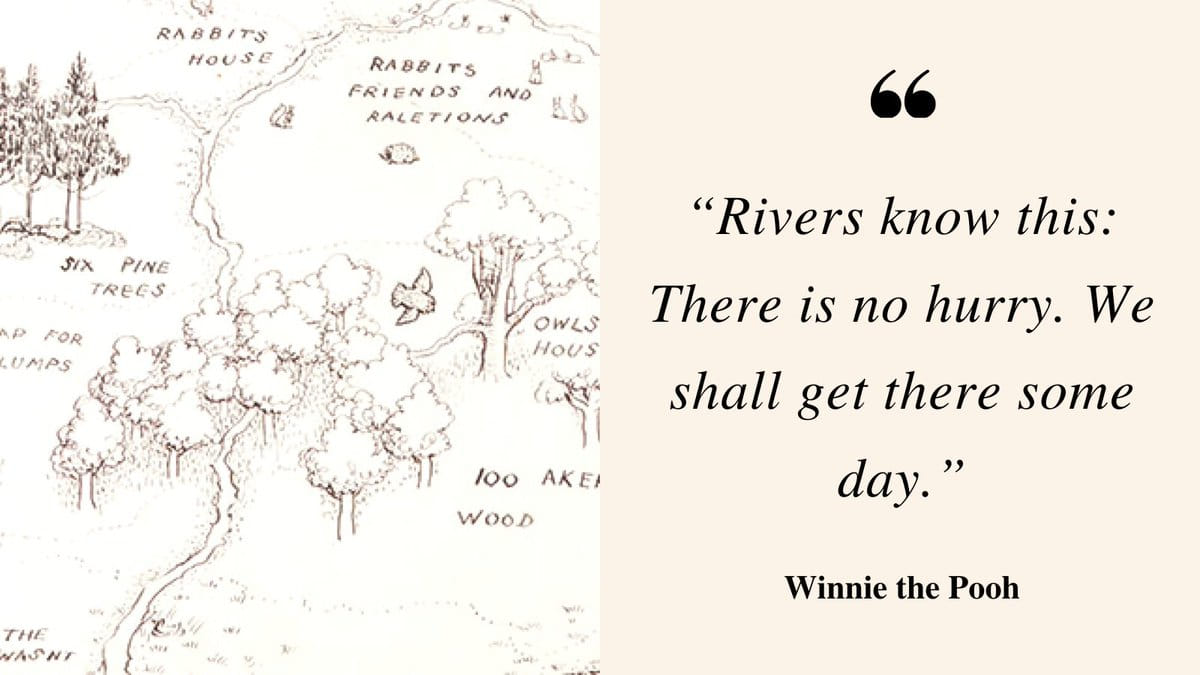 RABBITS
HOUSE
RABBITS
FRIENDS AND
RALETIONS
SIX PINE
TREES
AP FOR
LUMPS
OWLS
HOUS
100 AKE
WOOD
THE
WASNT
“Rivers know this:
There is no hurry. We
shall get there some
day.”
Winnie the Pooh